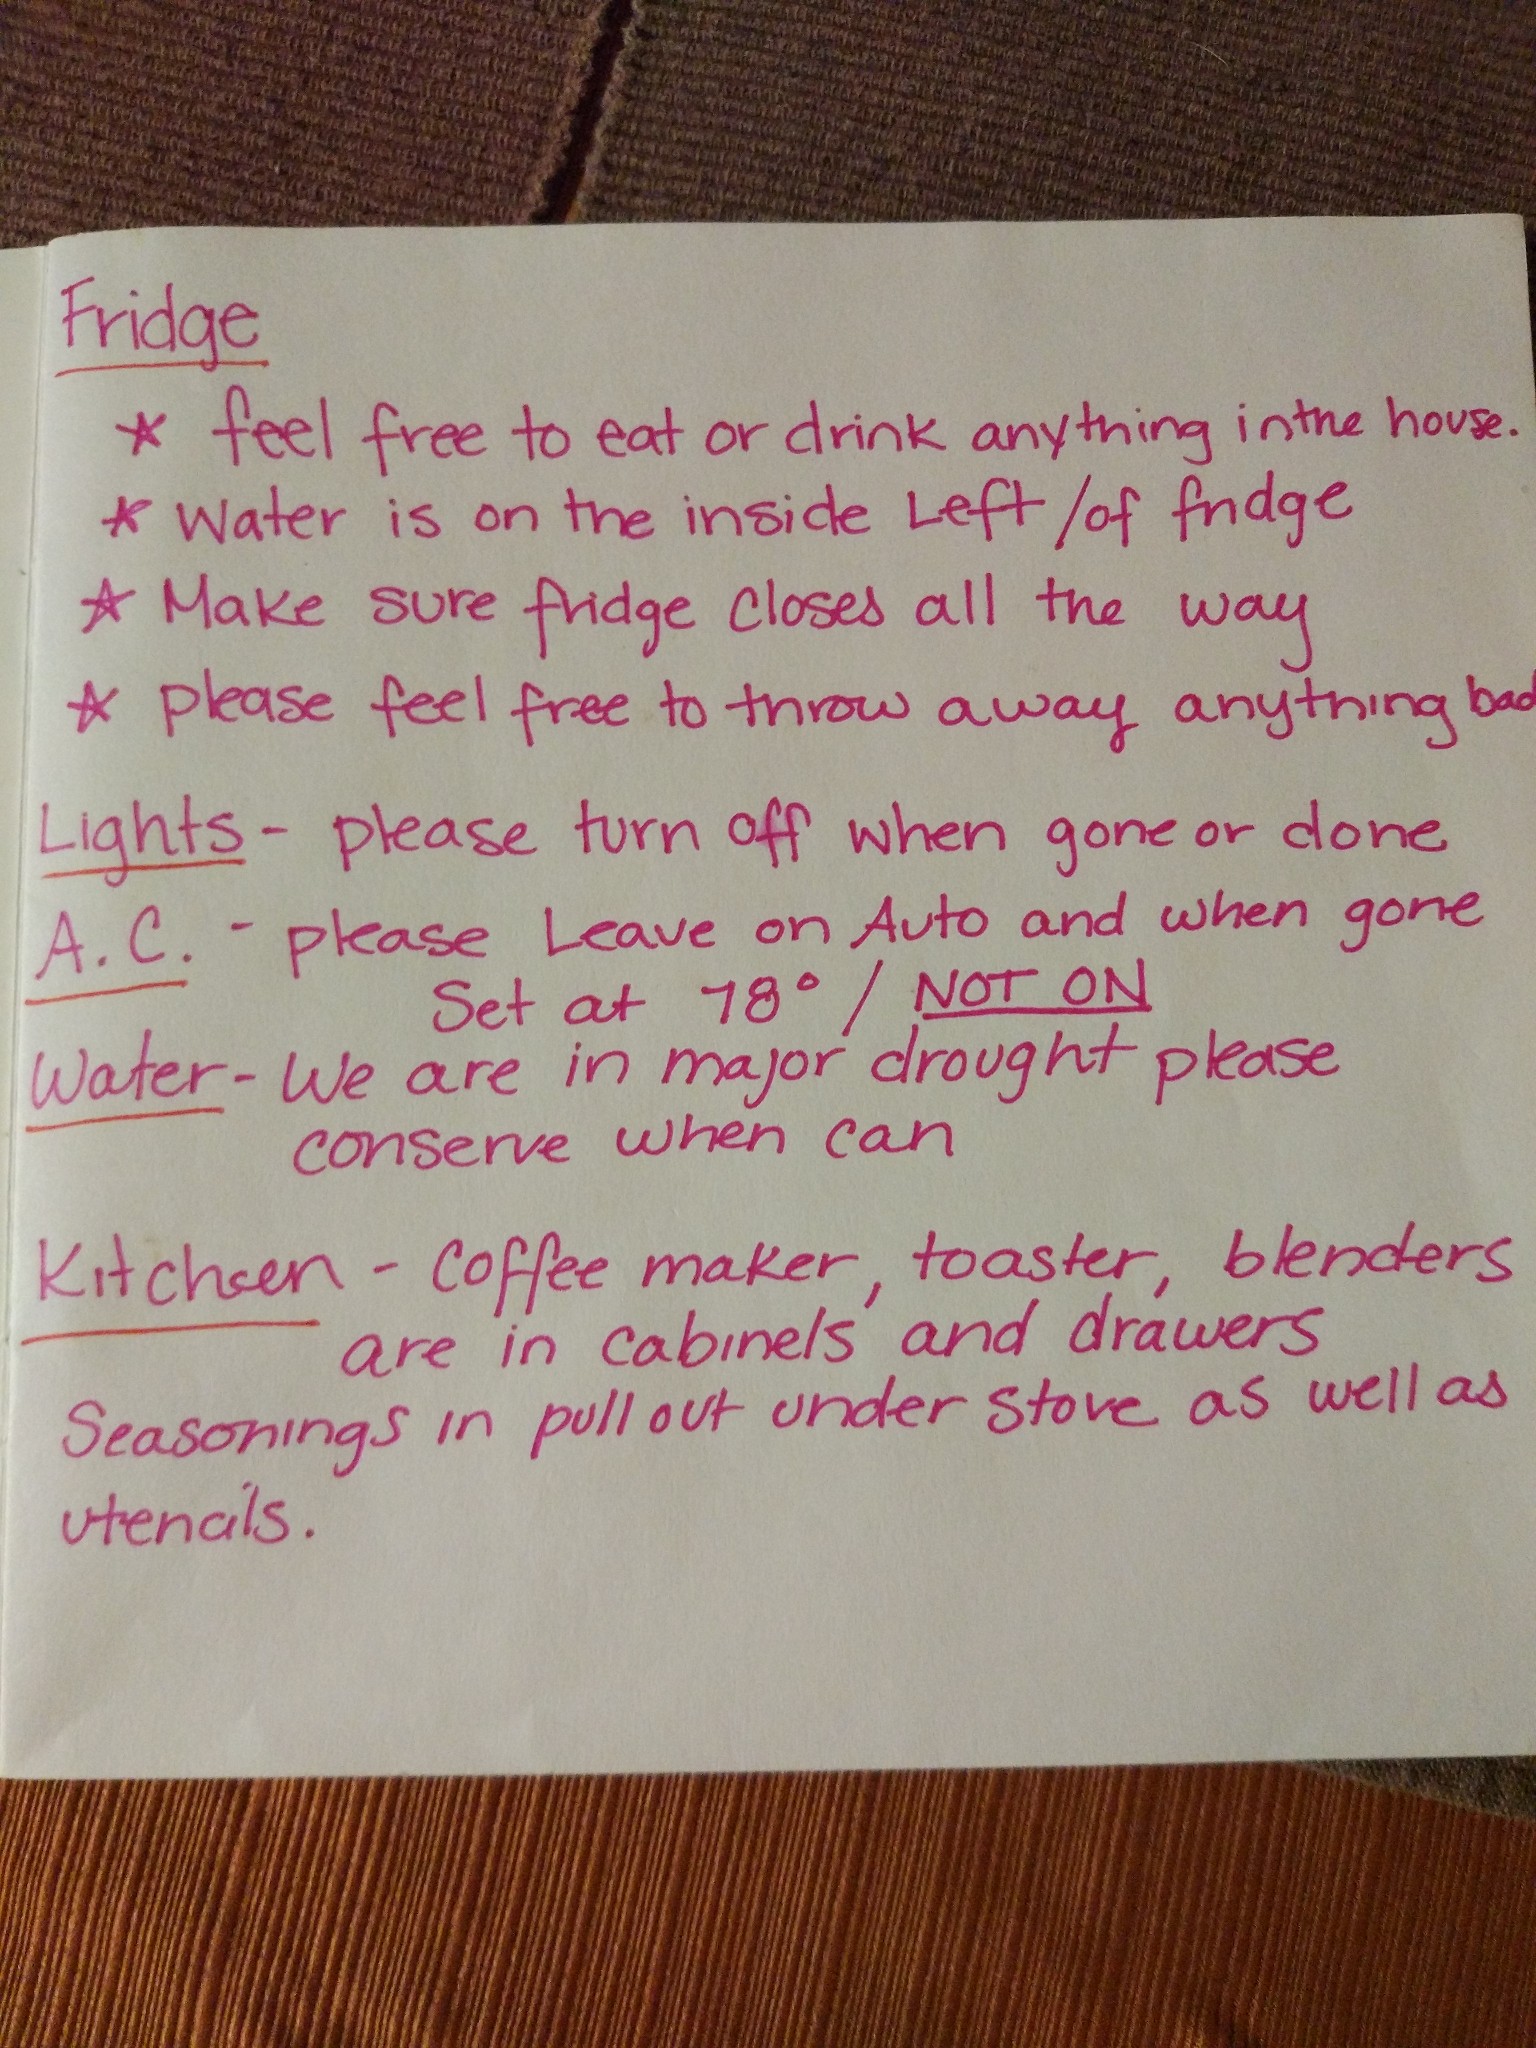 Fridge
* feel free to eat or drink anything in the house.
* Water is on the inside Left / of fridge
* Make sure fridge closes all the way
* please feel free to throw away anything bad
Lights - please turn off when gone or done
A.C. - please Leave on Auto and when gone
Set at 78° / NOT ON
Water - We are in major drought please
conserve when can
Kitchen - Coffee maker, toaster, blenders
are in cabinets and drawers
Seasonings in pull out under stove as well as
utencils.